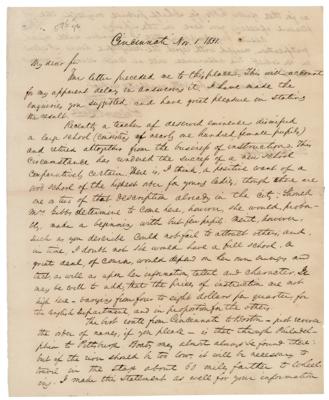 Cincinnati Nov. 1. 1831.
My dear Sir,
Your letter preceded me to this place. This will account
for my apparent delay in answering it. I have made the
enquiries you suggested and have great pleasure in stating
the result.
Recently a teacher of deserved eminence dismissed
a large school (consisting of nearly one hundred female pupils)
and retired altogether from the business of instruction. This
circumstance has rendered the success of a new School
comparatively certain. There is, I think, a positive want of a
good School of the highest order for young ladies, though there are
one or two of that description already in the city. Should
Mrs Gibbs determine to come here, however, she would, proba-
bly, make a beginning with but few pupils. Merit, however,
such as you describe could not fail to attract others, and,
in time, I doubt not she would have a full school. A
great deal, of course, would depend on her own energy and
tact, as well as upon her reputation, talent and character. It
may be well to add, that the prices of instruction are not
high here – varying from four to eight dollars per quarter, for
the English Department and in proportion for the others.
The best route from Cincinnati to Boston – just reverse
the order of names, if you please – is that through Philadel-
phia to Pittsburgh. Boats may almost always be found there:
but if the river should be too low, it will be necessary to
travel in the stage about 60 miles farther to Wheel-
ing. I make the statement as well for your information